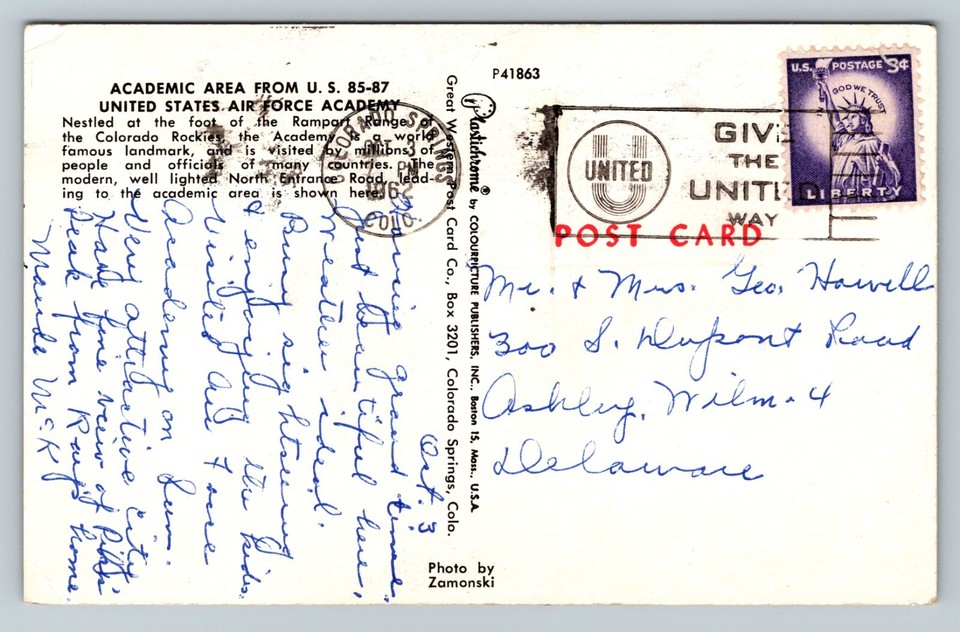 ACADEMIC AREA FROM U. S. 85-87
UNITED STATES AIR FORCE ACADEMY
Nestled at the foot of the Rampart Range of
the Colorado Rockies, the Academy is a world
famous landmark, and is visited by millions of
people and officials of many countries. The
modern, well lighted North Entrance Road, lead-
ing to the academic area is shown here.
Oct. 3
Having grand time.
Just beautiful here,
weather ideal.
Busy sightseeing
& enjoying the kids.
Visited Air Force
Academy on Sun.
Very attractive city
Have fine veiw of Pikes
Peak from Ray's home.
Maude McK
Great Western Post Card Co., Box 3201, Colorado Springs, Colo.
Plastichrome® by COLOURPICTURE PUBLISHERS, INC., Boston 15, Mass., U.S.A
P41863
Photo by
Zamonski
COLORADO SPRINGS
3
PM
1962
COLO.
UNITED
GIVE
THE
UNITED
WAY
U.S. POSTAGE 3¢
IN GOD WE TRUST
LIBERTY
POST CARD
Mr. & Mrs. Geo. Howell
300 S. Dupont Road
Ashley, Wilm. 4
Delaware